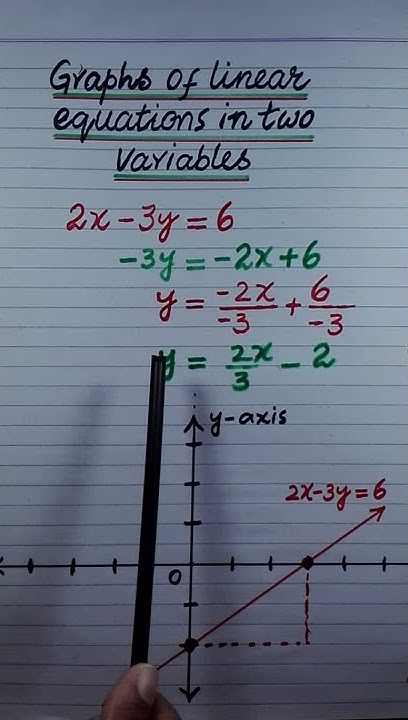 Graphs of linear
equations in two
variables
2x - 3y = 6
-3y = -2x + 6
y = -2x/-3 + 6/-3
y = 2x/3 - 2
y-axis
2x - 3y = 6
0